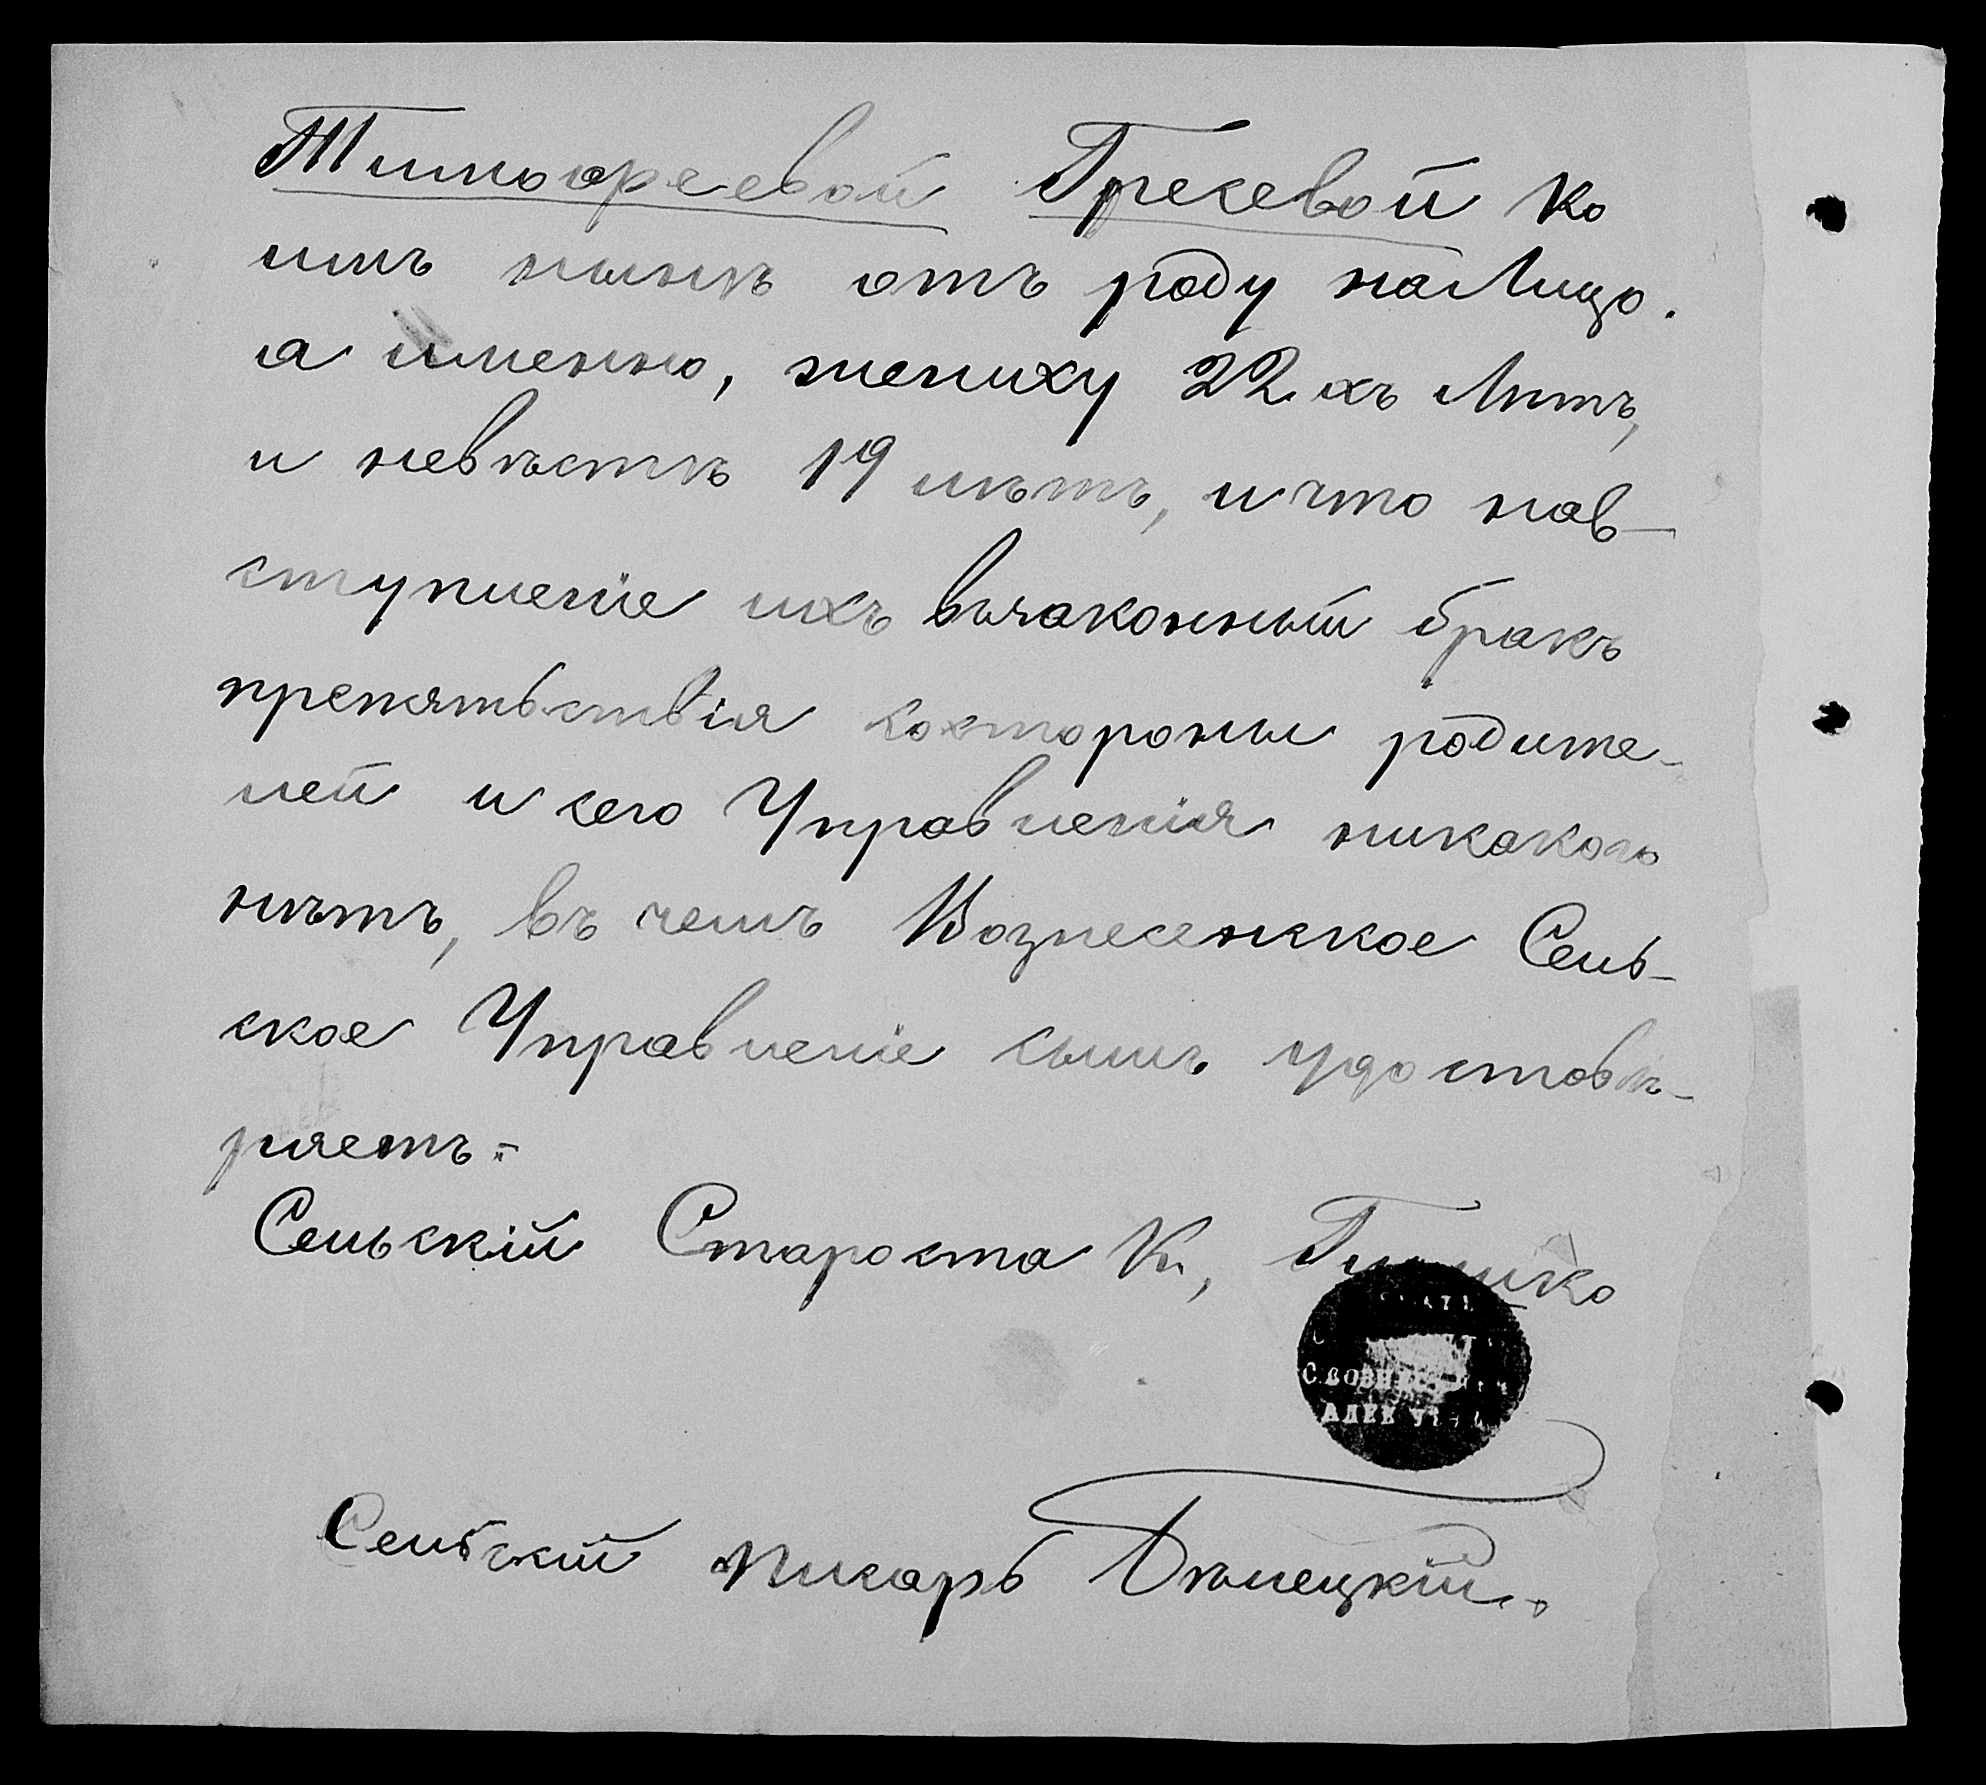 Тимофеевой Гресевой Ко
имъ нынѣ отъ роду на Лицо.
а именно, жениху 22 хъ Лѣтъ,
и невѣстѣ 19 лѣтъ, и что нав-
ступленіе ихъ взаконный бракъ
препятьствія состороны родите-
лей и сего Управленія никакого
нѣтъ, въ чемъ Вознесенское Сель-
ское Управленіе симъ удостовѣ-
ряетъ.-
Сельскій Староста К,
С. ВОЗН
АЛЕК У
Сельскій Писарь Бѣлецкій.